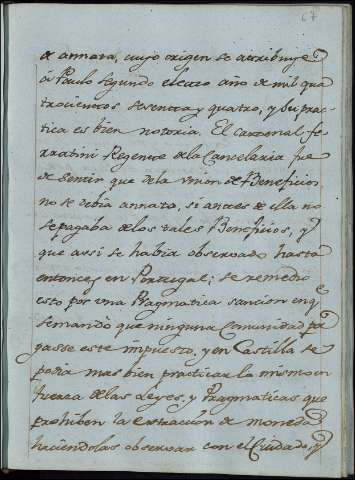 67
de annata, cuyo origen se atribuye
à Paulo segundo electo año de mil qua
trocientos sesenta y quatro, y su prac
tica es bien notoria. El Cardenal fe
rratini Regente de la Cancelaria fue
de sentir que de la union de Beneficios
no se debia annata, si antes de ella no
se pagaba de los tales Beneficios, y
que assi se habia observado hasta
entonces en Portugal; se remedio
esto por una Pragmatica sancion en q
se mandò que ninguna Comunidad pa
gasse este impuesto, y en Castilla se
podia mas bien practicar lo mismo en
fuerza de las Leyes, y Pragmaticas que
prohiben la extraccion de moneda
haciendolas observar con el Cuidado, y